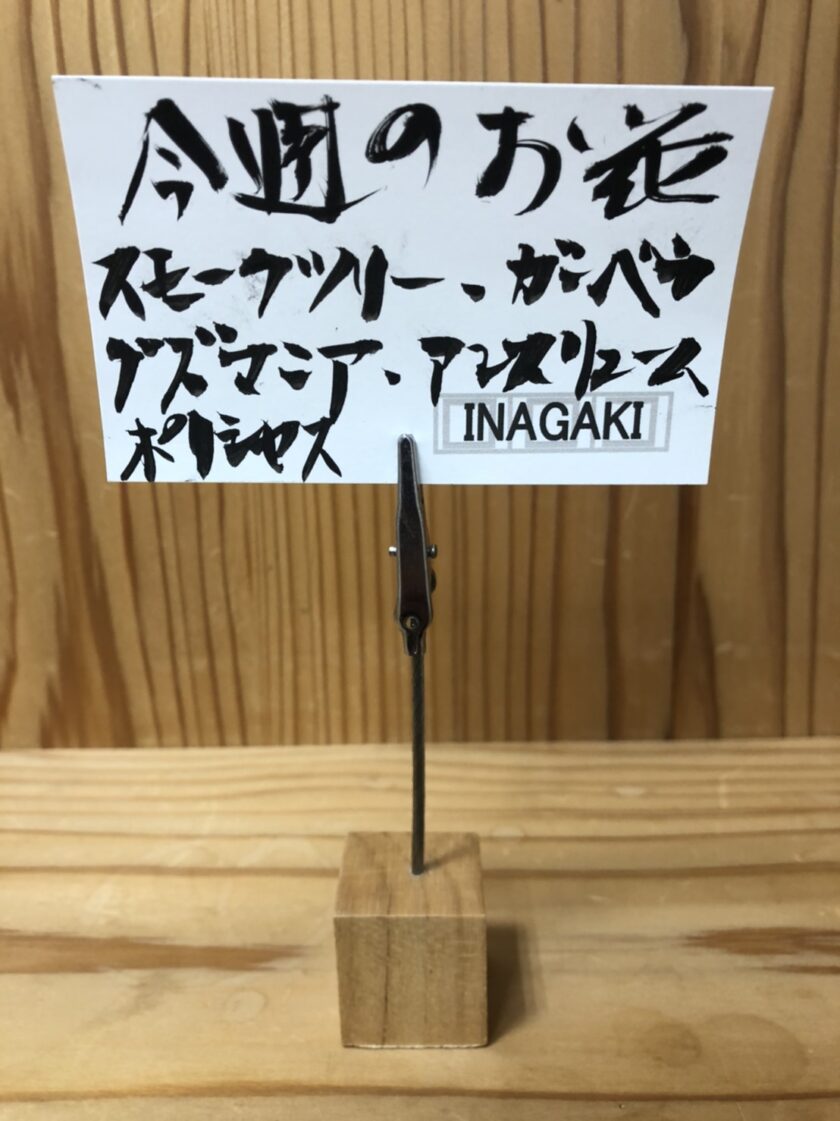 今週のお花
スモークツリー、ガーベラ
グズマニア、アンスリューム
ポリシャス
INAGAKI